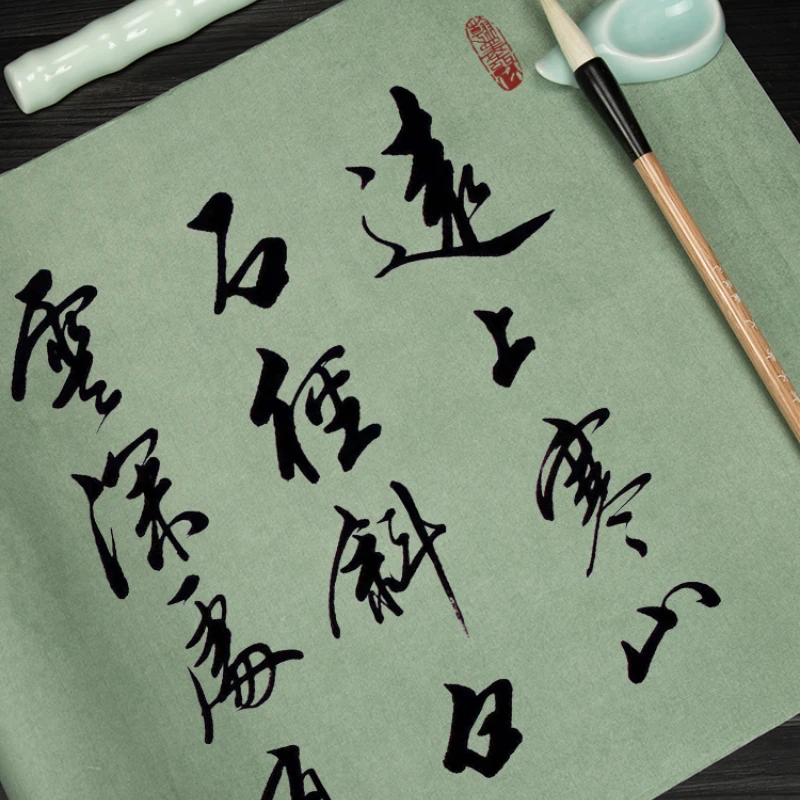 遠上寒山
石徑斜白
雲深處有